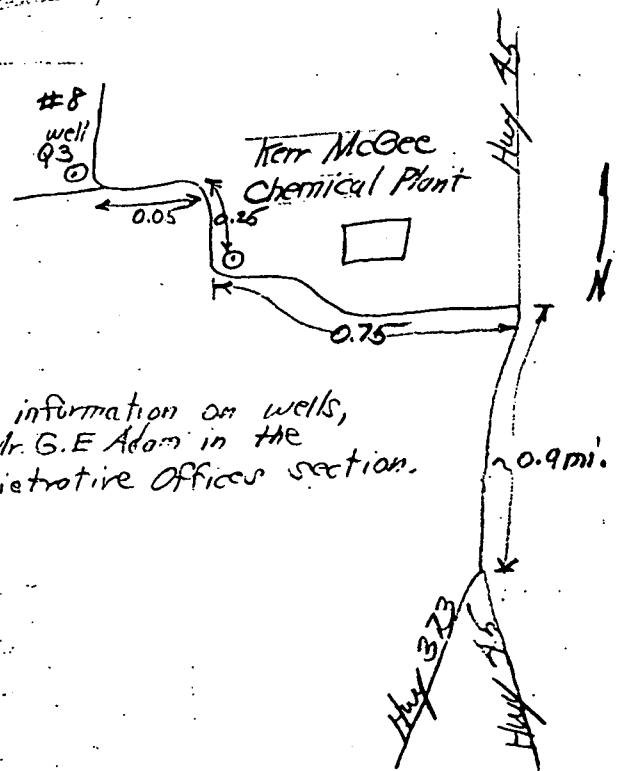 Hwy 45
#8
well
Q3
Kerr McGee
Chemical Plant
0.05
0.25
N
0.75
information on wells,
Mr. G.E Adam in the
Offices section.
~0.9 mi.
Hwy 373
Hwy 45